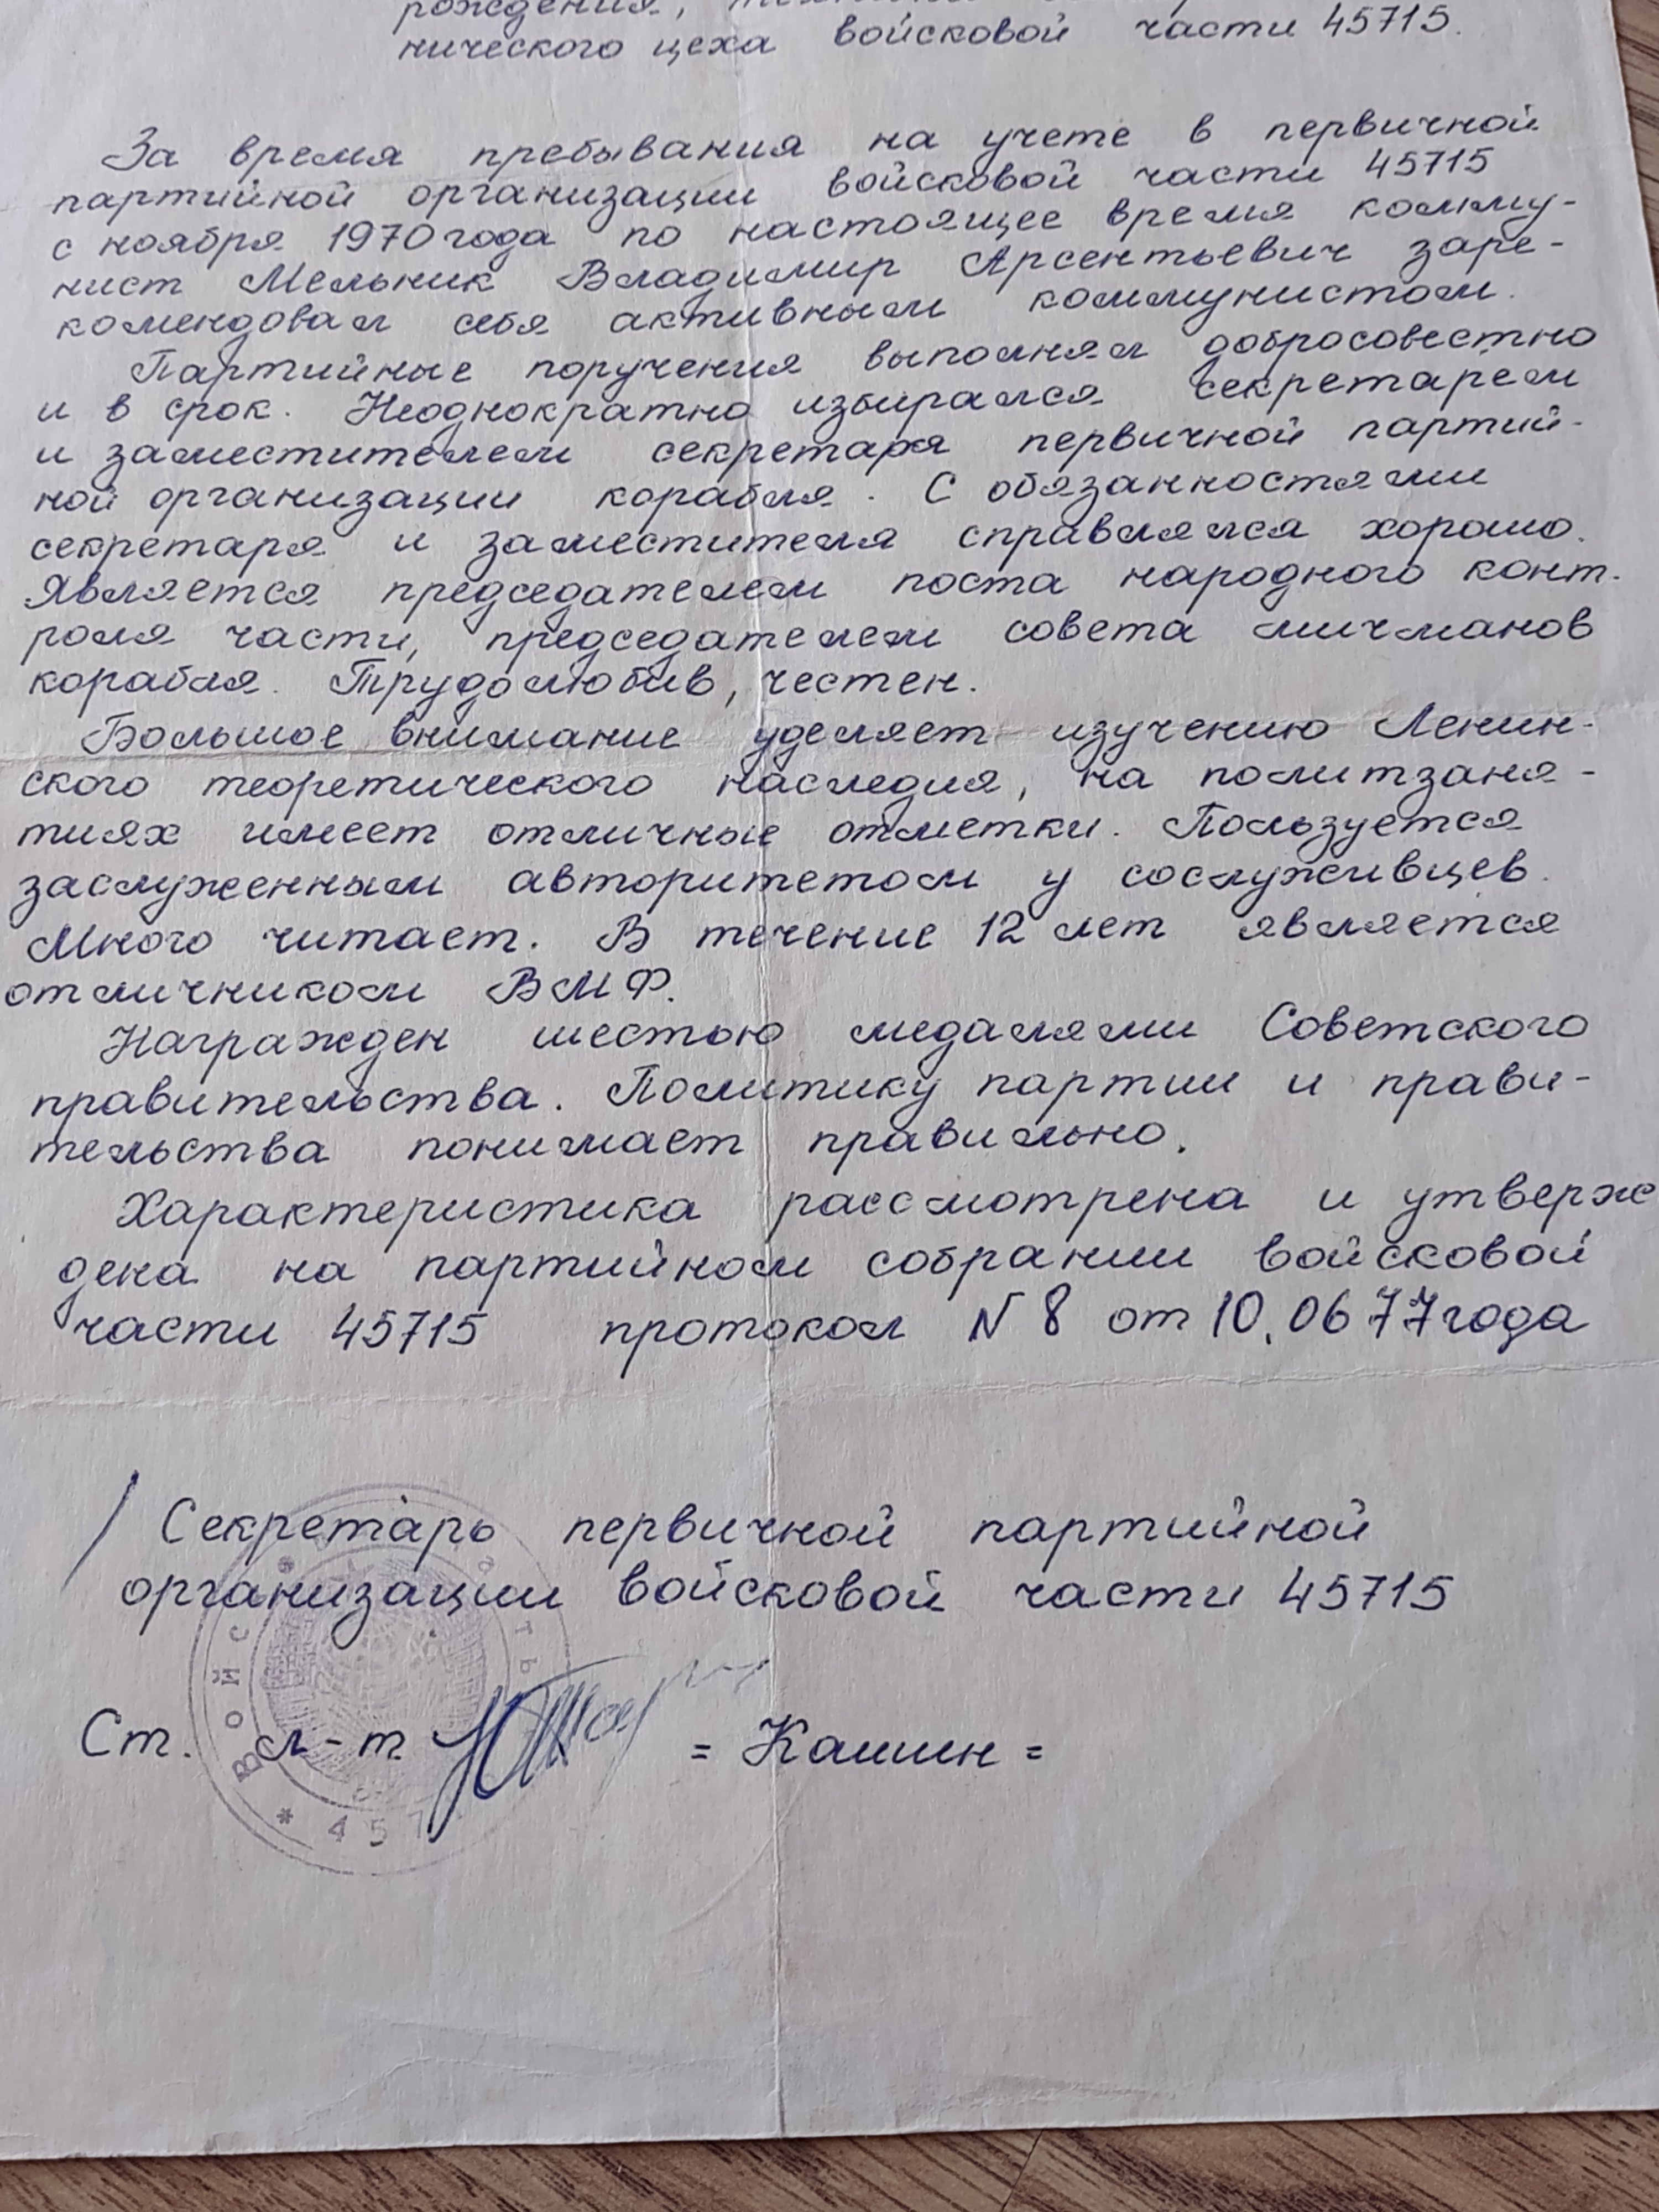 рождения,
нического цеха войсковой части 45715.
За время пребывания на учете в первичной
партийной организации войсковой части 45715
с ноября 1970 года по настоящее время комму-
нист Мельник Владимир Арсентьевич заре-
комендовал себя активным коммунистом.
Партийные поручения выполнял добросовестно
и в срок. Неоднократно избирался секретарем
и заместителем секретаря первичной партий-
ной организации корабля. С обязанностями
секретаря и заместителя справлялся хорошо.
Является председателем поста народного конт-
роля части, председателем совета мичманов
корабля. Трудолюбив, честен.
Большое внимание уделяет изучению Ленин-
ского теоретического наследия, на политзаня-
тиях имеет отличные отметки. Пользуется
заслуженным авторитетом у сослуживцев.
Много читает. В течение 12 лет является
отличником ВМФ.
Награжден шестью медалями Советского
правительства. Политику партии и прави-
тельства понимает правильно.
Характеристика рассмотрена и утверж
дена на партийном собрании войсковой
части 45715 протокол N 8 от 10.06 77 года
Секретарь первичной партийной
организации войсковой части 45715
Ст. л-т = Кашин =